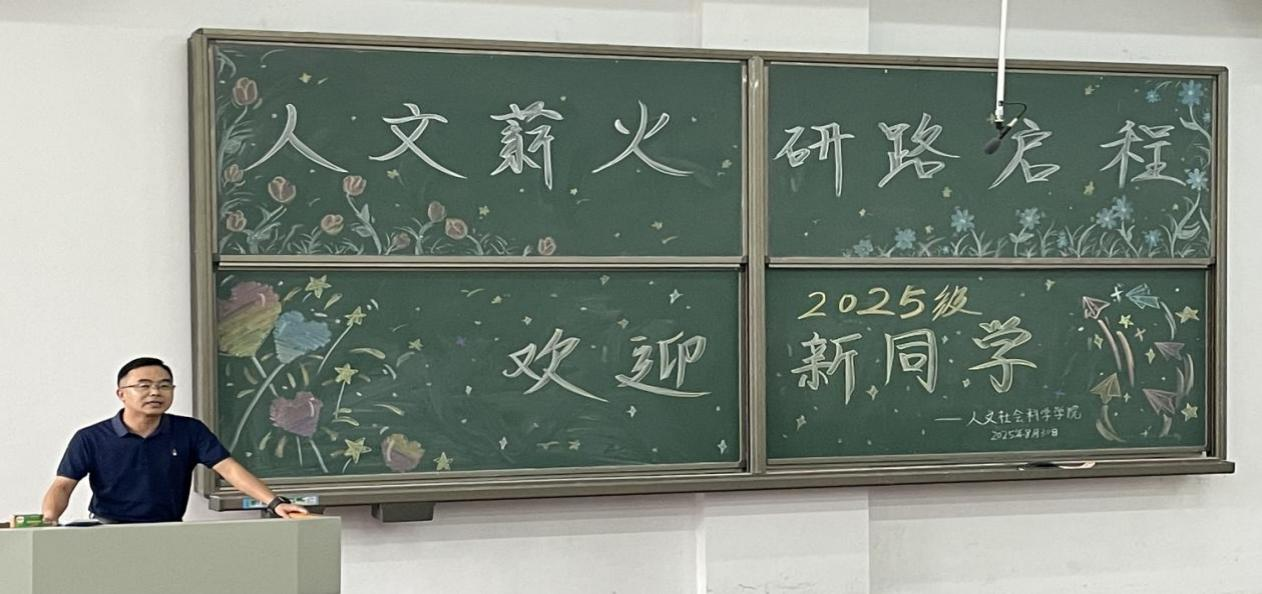 人文薪火 研路启程
欢迎 2025级
新同学
——人文社会科学学院
2025年8月30日